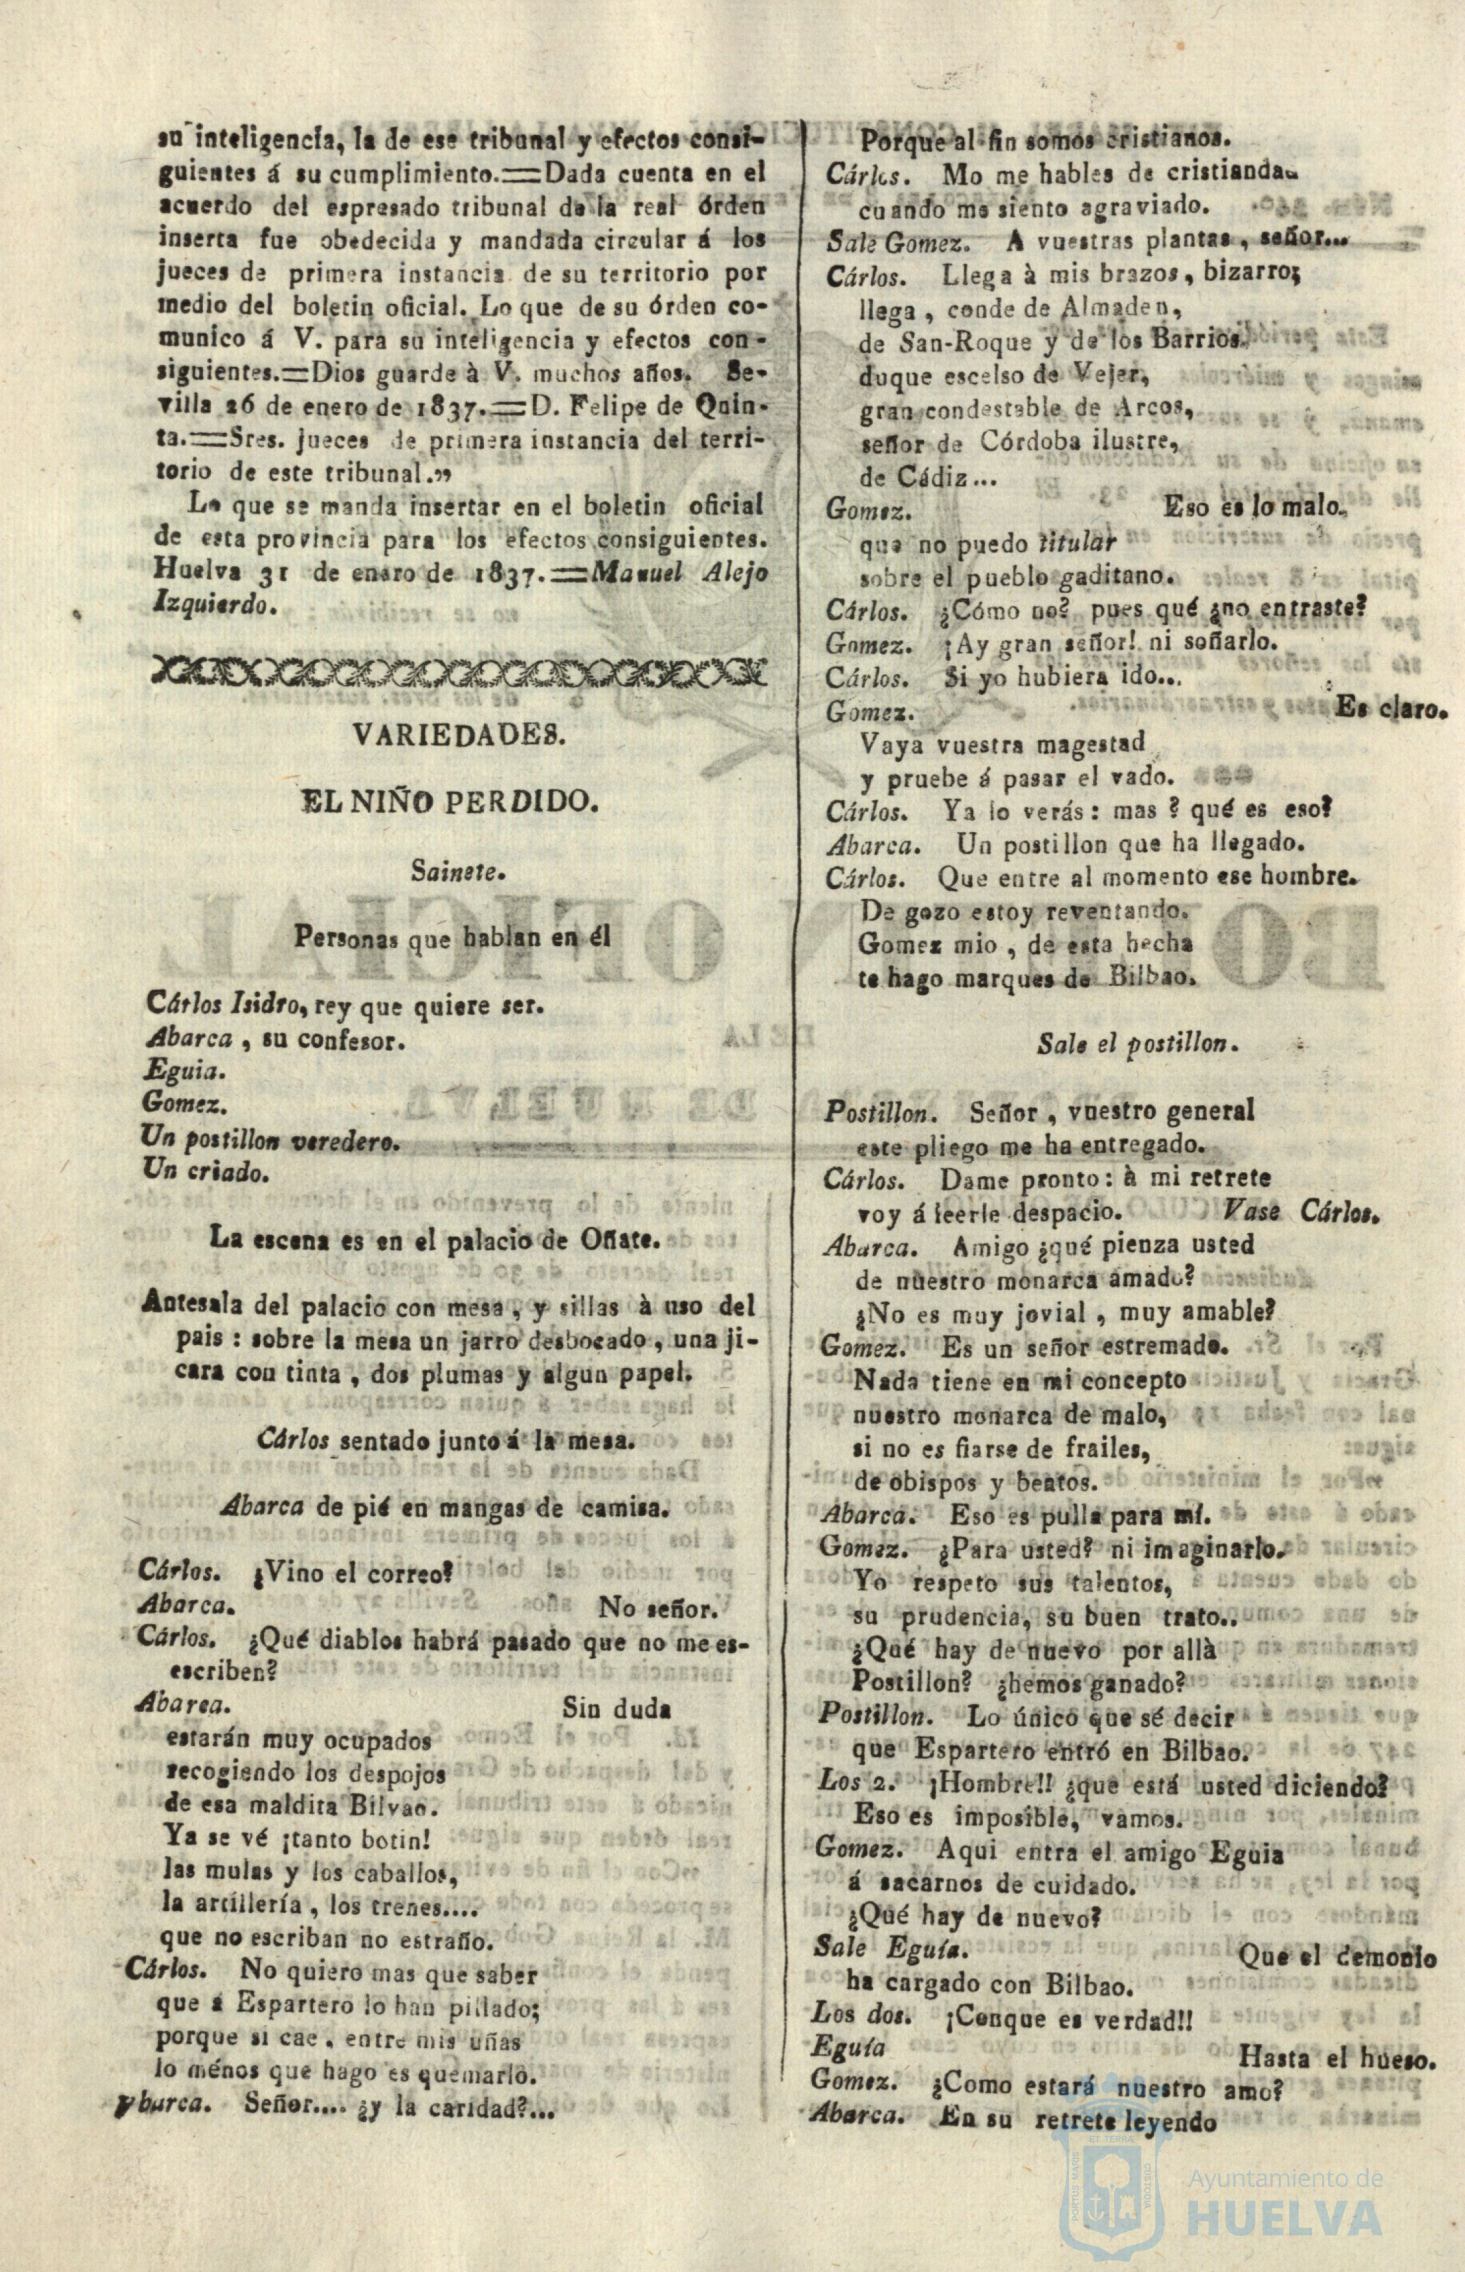 su inteligencia, la de ese tribunal y efectos consi-
guientes á su cumplimiento.=Dada cuenta en el
acuerdo del espresado tribunal de la real órden
inserta fue obedecida y mandada circular á los
jueces de primera instancia de su territorio por
medio del boletin oficial. Lo que de su órden co-
munico á V. para su inteligencia y efectos con-
siguientes.=Dios guarde à V. muchos años. Se-
villa 26 de enero de 1837.=D. Felipe de Quin-
ta.=Sres. jueces de primera instancia del terri-
torio de este tribunal.”
Lo que se manda insertar en el boletin oficial
de esta provincia para los efectos consiguientes.
Huelva 31 de enero de 1837.=Manuel Alejo
Izquierdo.
VARIEDADES.
EL NIÑO PERDIDO.
Sainete.
Personas que hablan en él
Cárlos Isidro, rey que quiere ser.
Abarca , su confesor.
Eguia.
Gomez.
Un postillon veredero.
Un criado.
La escena es en el palacio de Oñate.
Antesala del palacio con mesa , y sillas à uso del
pais : sobre la mesa un jarro desbocado , una ji-
cara con tinta , dos plumas y algun papel.
Cárlos sentado junto á la mesa.
Abarca de pié en mangas de camisa.
Cárlos. ¿Vino el correo?
Abarca. No señor.
Cárlos. ¿Qué diablos habrá pasado que no me es-
escriben?
Abarca. Sin duda
estarán muy ocupados
recogiendo los despojos
de esa maldita Bilvao.
Ya se vé ¡tanto botin!
las mulas y los caballos,
la artillería , los trenes....
que no escriban no estraño.
Cárlos. No quiero mas que saber
que á Espartero lo han pillado;
porque si cae , entre mis uñas
lo ménos que hago es quemarlo.
Abarca. Señor.... ¿y la caridad?...
Porque al fin somos cristianos.
Cárlos. Mo me hables de cristiandad
cuando me siento agraviado.
Sale Gomez. A vuestras plantas , señor...
Cárlos. Llega à mis brazos , bizarro;
llega , conde de Almaden,
de San-Roque y de los Barrios.
duque escelso de Vejer,
gran condestable de Arcos,
señor de Córdoba ilustre,
de Cádiz...
Gomez. Eso es lo malo,
que no puedo titular
sobre el pueblo gaditano.
Cárlos. ¿Cómo no? pues qué ¿no entraste?
Gomez. ¡Ay gran señor! ni soñarlo.
Cárlos. Si yo hubiera ido...
Gomez. Es claro.
Vaya vuestra magestad
y pruebe á pasar el vado.
Cárlos. Ya lo verás : mas ? qué es eso?
Abarca. Un postillon que ha llegado.
Cárlos. Que entre al momento ese hombre.
De gozo estoy reventando.
Gomez mio , de esta hecha
te hago marques de Bilbao.
Sale el postillon.
Postillon. Señor , vuestro general
este pliego me ha entregado.
Cárlos. Dame pronto : à mi retrete
voy á leerle despacio. Vase Cárlos.
Abarca. Amigo ¿qué pienza usted
de nuestro monarca amado?
¿No es muy jovial , muy amable?
Gomez. Es un señor estremado.
Nada tiene en mi concepto
nuestro monarca de malo,
si no es fiarse de frailes,
de obispos y beatos.
Abarca. Eso es pulla para mí.
Gomez. ¿Para usted? ni imaginarlo.
Yo respeto sus talentos,
su prudencia, su buen trato..
¿Qué hay de nuevo por allà
Postillon? ¿hemos ganado?
Postillon. Lo único que sé decir
que Espartero entró en Bilbao.
Los 2. ¡Hombre!! ¿que está usted diciendo?
Eso es imposible, vamos.
Gomez. Aqui entra el amigo Eguia
á sacarnos de cuidado.
¿Qué hay de nuevo?
Sale Eguía. Que el demonio
ha cargado con Bilbao.
Los dos. ¡Conque es verdad!!
Eguía Hasta el hueso.
Gomez. ¿Como estará nuestro amo?
Abarca. En su retrete leyendo
Ayuntamiento de
HUELVA